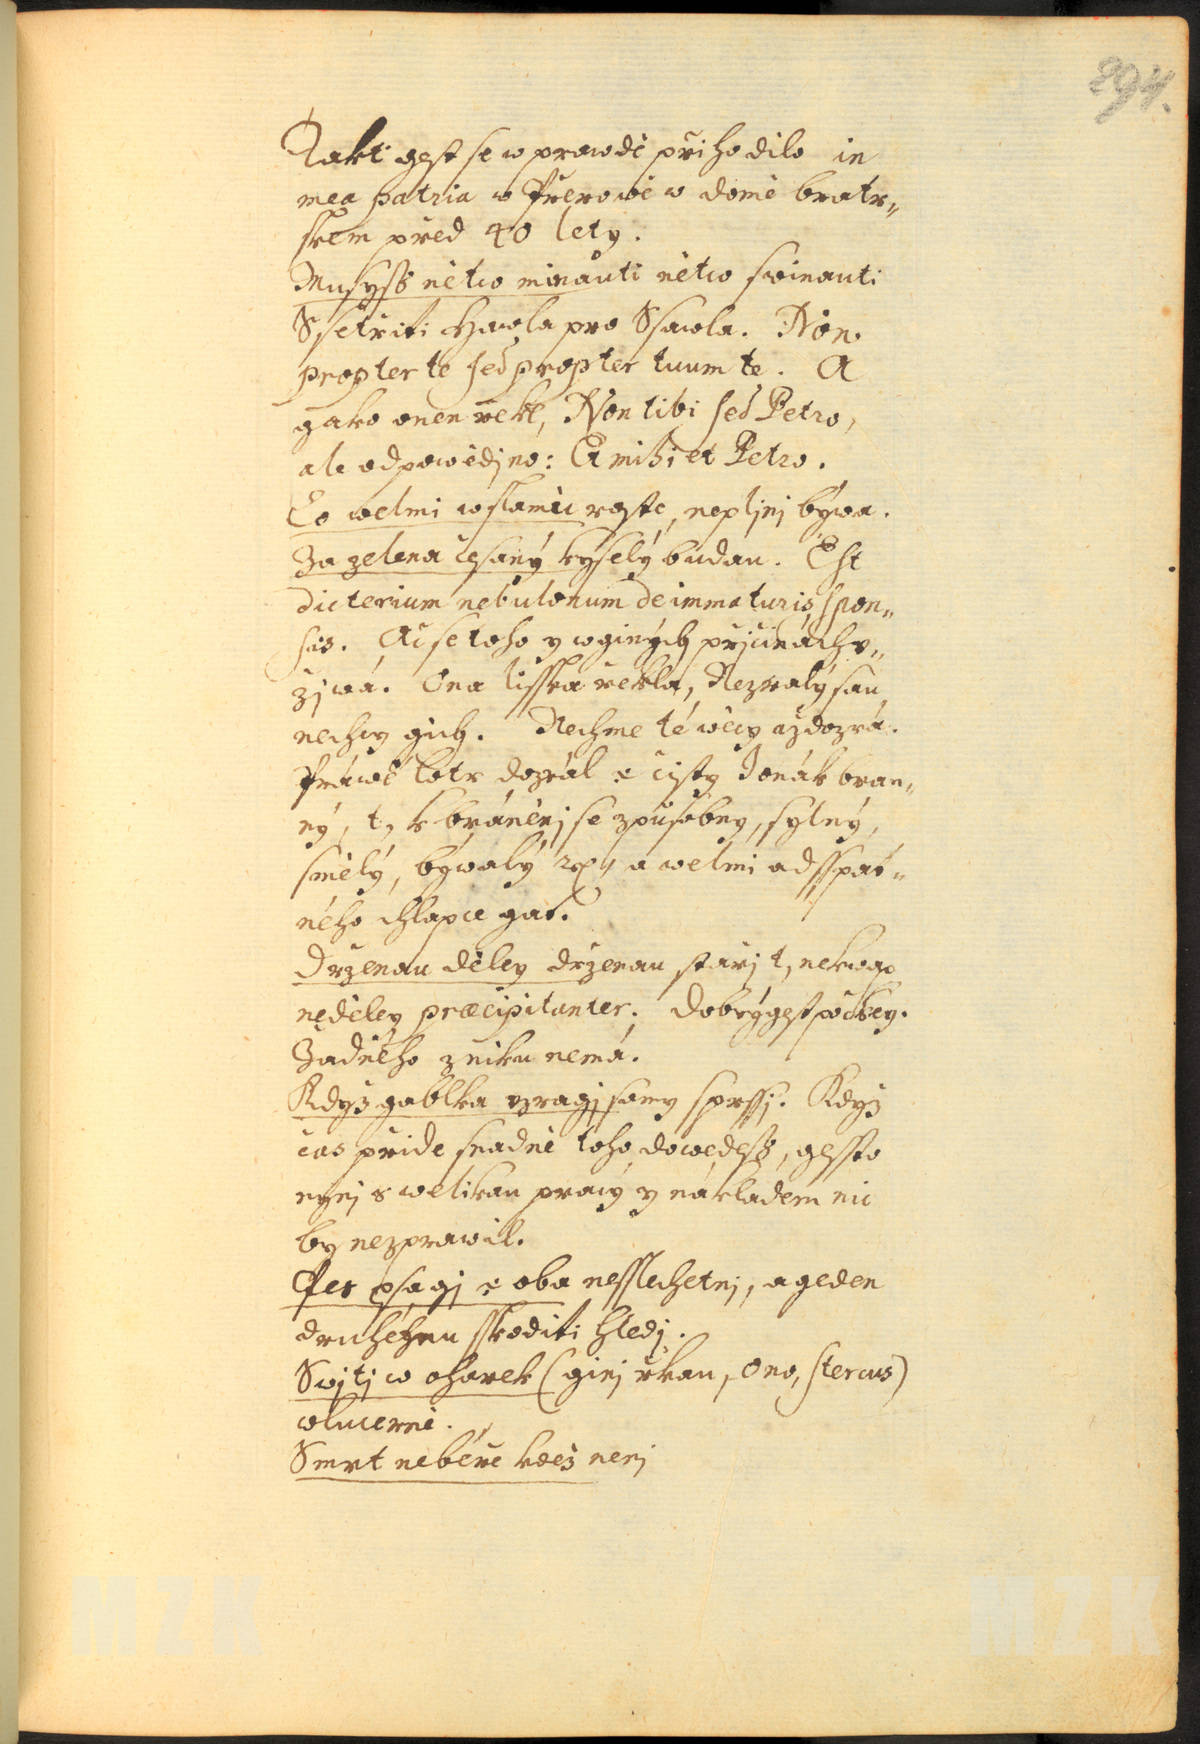 294.
Takti gest se w prawdě přihodilo in
mea patria w Přerowě w domě bratr„
skem před 40 lety.
Musyss něco minauti něco swinauti
Ssetřiti Hawla pro Ssawla. Non
propter te sed propter tuum te. A
gako onen řekl, Non tibi sed Petro,
ale odpowědjno: Et mihi et Petro.
Co welmi w slamu roste, nepljnj býwa.
Za zelena česaný kyselý budau. Est
dicterium nebulonum de immaturis spon„
sis. Ač se toho y w giných přjčinách v„
zjwá. Ona lisska řekla, Nezralý sau,
nechcy gich. Nechme té wěcy až dozrá.
Práwě lotr dozrál e čistý Jonák bran„
ný, t, k bráněnj se způsobny, sylný,
smělý, býwalý a welmi ad sspat„
ného chlapce gat.
Drženau děley drženau starj t, nekwap
neděley præcipitanter. Dobrý gest počkey.
Žádného zniku nemá.
Když gablka zragj samy sprssj. Když
čas přide snadně toho dowedess, gessto
nynj s welikau pracý y nákladem nic
by nezprawil.
Pes psagj e oba nesslechetnj, a geden
druhéhmu sskoditi hledj.
Swjtj w oharek (ginj řkau, Ono, stercus)
w lucerně.
Smrt nebéře kdež nenj
MZK
MZK